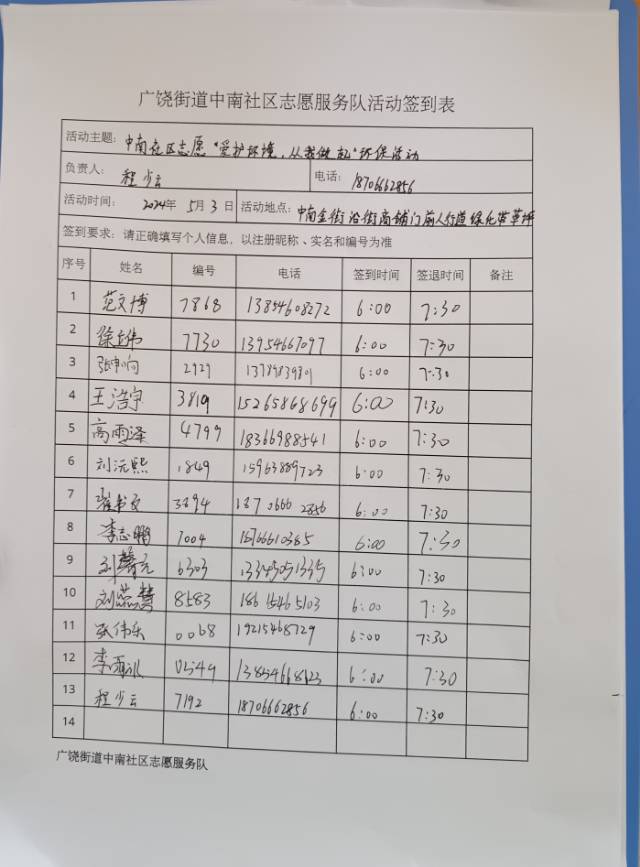 广饶街道中南社区志愿服务队活动签到表
活动主题：中南社区志愿"爱护环境，从我做起"环保活动
负责人：程少云 电话：18706662856
活动时间：2024年5月3日 活动地点：中南金街沿街商铺门前人行道绿化带草坪
签到要求：请正确填写个人信息，以注册昵称、实名和编号为准
序号 姓名 编号 电话 签到时间 签退时间 备注
1 范文博 7868 13854608272 6:00 7:30
2 徐志伟 7730 13954667097 6:00 7:30
3 张申响 2927 6:00 7:30
4 王浩宇 3819 15265868699 6:00 7:30
5 高雨泽 4799 18366988541 6:00 7:30
6 刘沅熙 1849 15963889723 6:00 7:30
7 3894 6:00 7:30
8 李志鹏 7004 6:00 7:30
9 6303 6:00 7:30
10 刘蕊慧 8583 18615465103 6:00 7:30
11 张伟乐 0068 19215468729 6:00 7:30
12 6:00 7:30
13 程少云 7192 18706662856 6:00 7:30
14
广饶街道中南社区志愿服务队